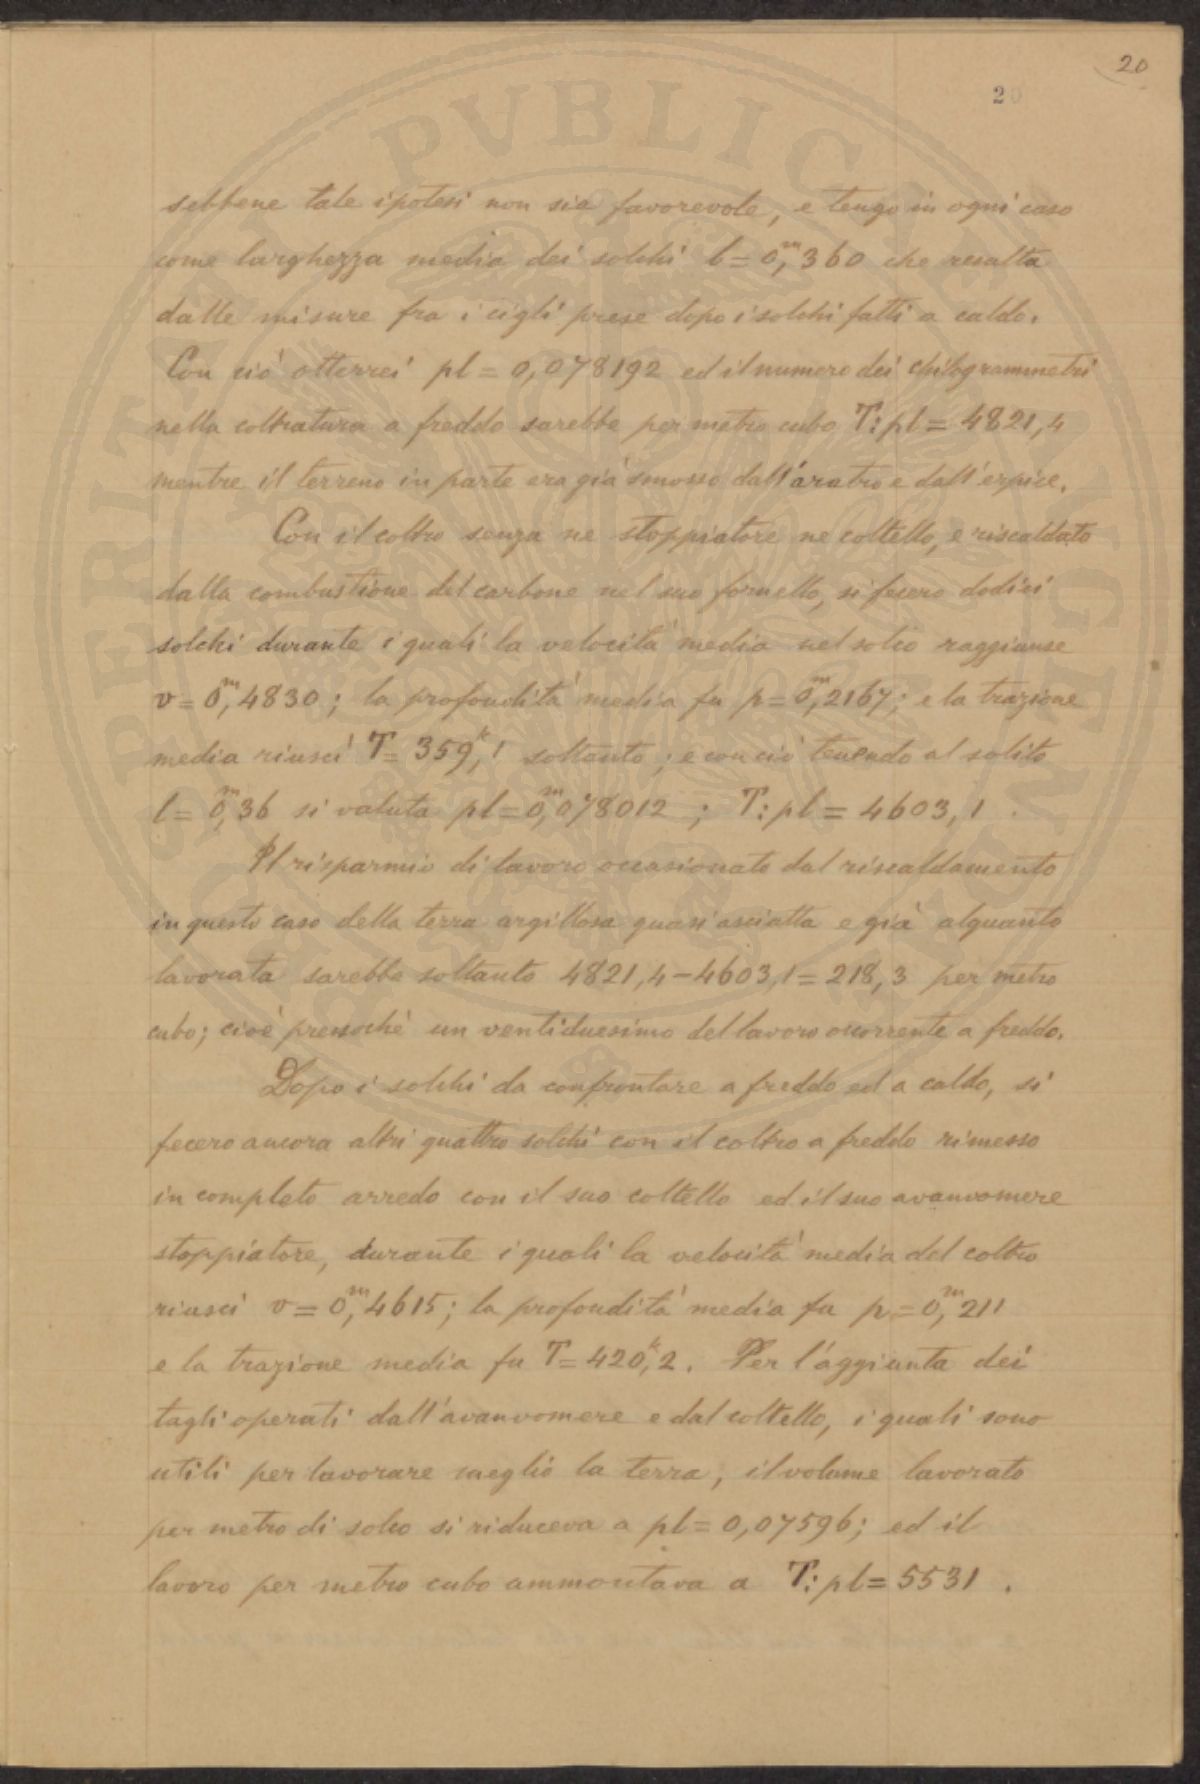 20
20
sebbene tale ipotesi non sia favorevole, e tengo in ogni caso
come larghezza media dei solchi l = 0,ᵐ360 che resulta
dalle misure fra i cigli prese dopo i solchi fatti a caldo.
Con ciò otterrei pl = 0,078192 ed il numero dei chilogrammetri
nella coltratura a freddo sarebbe per metro cubo T:pl = 4821,4
mentre il terreno in parte era già smosso dall'aratro e dall'erpice.
Con il coltro senza ne stoppiatore ne coltello, e riscaldato
dalla combustione del carbone nel suo fornello, si fecero dodici
solchi durante i quali la velocità media nel solco raggiunse
v = 0,ᵐ4830; la profondità media fu p = 0,ᵐ2167; e la trazione
media riuscì T = 359,ᵏ1 soltanto; e con ciò tenendo al solito
l = 0,ᵐ36 si valuta pl = 0,ᵐ078012; T:pl = 4603,1.
Il risparmio di lavoro occasionato dal riscaldamento
in questo caso della terra argillosa quasi asciatta e già alquanto
lavorata sarebbe soltanto 4821,4 – 4603,1 = 218,3 per metro
cubo; cioè pressochè un ventiduesimo del lavoro occorrente a freddo.
Dopo i solchi da confrontare a freddo ed a caldo, si
fecero ancora altri quattro solchi con il coltro a freddo rimesso
in completo arredo con il suo coltello ed il suo avanvomere
stoppiatore, durante i quali la velocità media del coltro
riuscì v = 0,ᵐ4615; la profondità media fu p = 0,ᵐ211
e la trazione media fu T = 420,ᵏ2. Per l'aggiunta dei
tagli operati dall'avanvomere e dal coltello, i quali sono
utili per lavorare meglio la terra, il volume lavorato
per metro di solco si riduceva a pl = 0,07596; ed il
lavoro per metro cubo ammontava a T:pl = 5531.